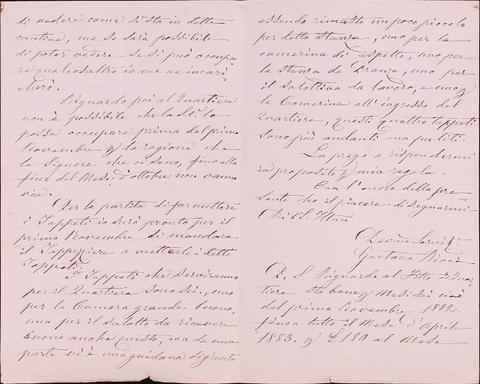 di vedere come si sta in dette
cantine, ma se sarà possibile
di poter vedere se si può occupa
re qualcosaltro io me ne incari
cherò.
Riguardo poi al Quartiere
non è possibile che la S.V.
possa occupare prima del primo
Novembre p la ragione che
le Signore che ci sono, fino alla
fine del Mese d'ottobre non vanno
via.
Per la partita di far mettere
i Tappeti io sarò pronto per il
primo Novembre di mandare
il Tappeziere a metterle i detti
Tappeti.
I Tappeti che serviranno
per il Quartiere sono sei, uno
per la Camera grande buono,
uno per il Salotto da ricevere
buono anche questo, ma da una
parte vi è una guidana di giunta
essendo rimasto un poco piccolo
per detta stanza, uno per la
camerina di aspetto, uno per
la stanza da Pranzo, uno per
il Salottino da lavoro, e uno p
la Camerina all'ingresso del
Quartiere, questi quattro tappeti
sono più andanti ma puliti.
La prego a rispondermi
in proposito p mia regola.
Con l'onore della pre
sente ho il piacere di segnarmi
Di V.S. Ill.ma
Gaetano
P.S. Riguardo al fitto di Quar
tiere sta bene p Mesi sei cioè
dal primo Novembre 1882
fino a tutto il Mese d'Aprile
1883. p £ 180 al Mese